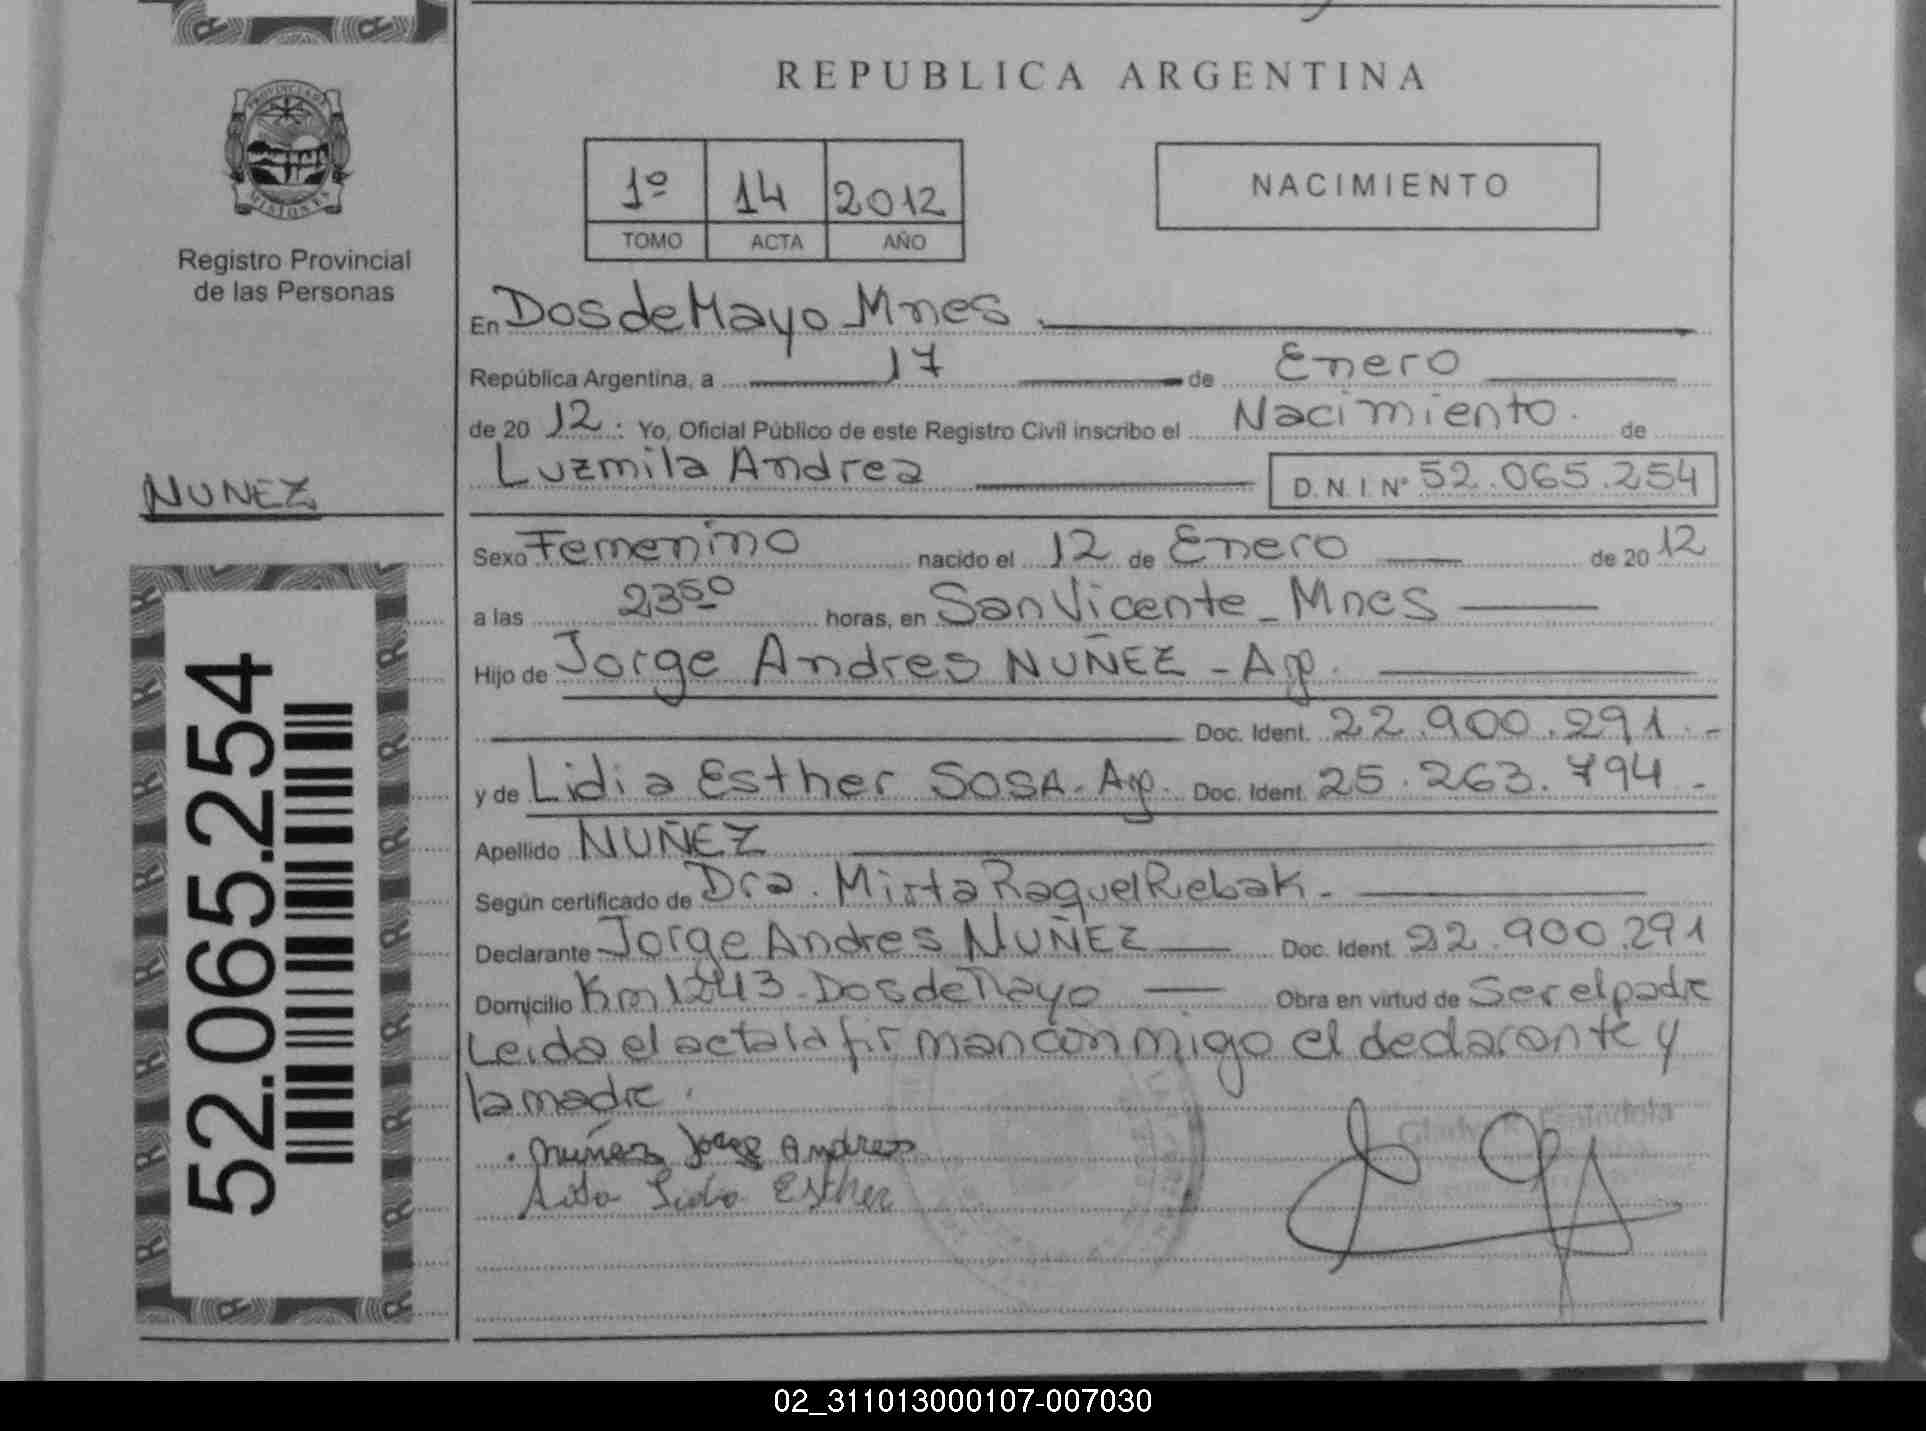 REPUBLICA ARGENTINA
PROVINCIA DE
MISIONES
Registro Provincial
de las Personas
1º 14 2012
TOMO ACTA AÑO
NACIMIENTO
En Dos de Mayo Mnes
República Argentina, a 17 de Enero
de 20 12 : Yo, Oficial Público de este Registro Civil inscribo el Nacimiento. de
Luzmila Andrea D.N.I. Nº 52.065.254
NUNEZ
Sexo Femenino nacido el 12 de Enero de 20 12
a las 23 50 horas, en San Vicente - Mnes
Hijo de Jorge Andres NUÑEZ - Arg.
Doc. Ident. 22.900.291.-
y de Lidia Esther SOSA - Arg. Doc. Ident. 25.263.794.-
Apellido NUÑEZ
Según certificado de Dra. Mirta Raquel Rebak.
Declarante Jorge Andres NUÑEZ Doc. Ident. 22.900.291
Domicilio Km 1243 - Dos de Mayo Obra en virtud de Ser el padre
Leida el acta la firman conmigo el declarante y
la madre.
Nuñez Jorge Andres
Esther
52.065.254
02_311013000107-007030